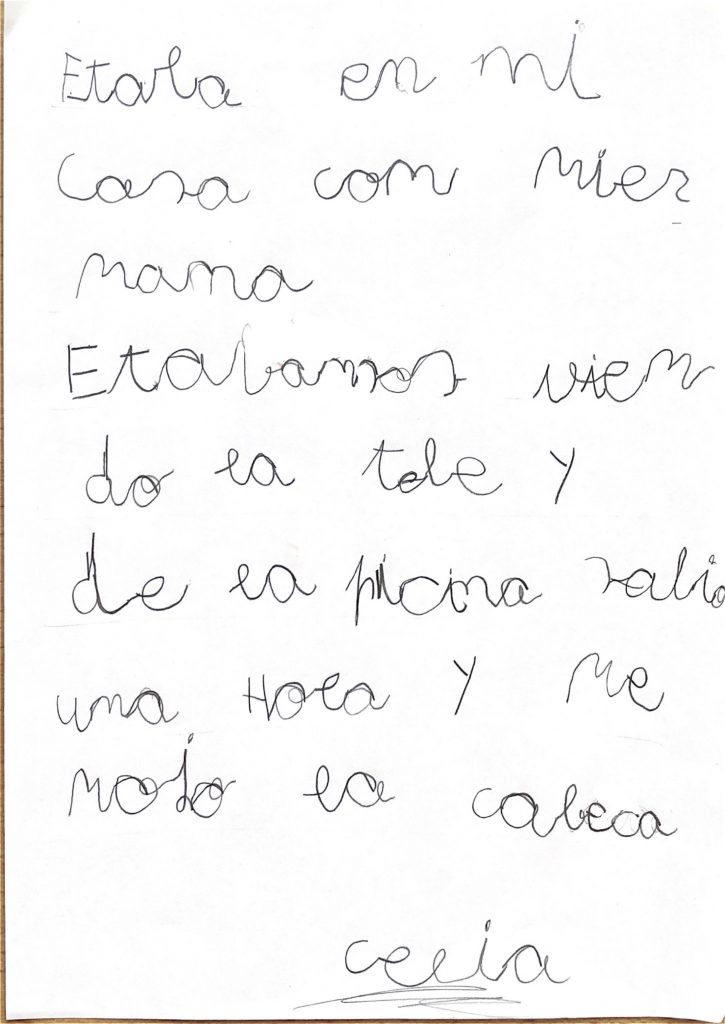 Etaba en mi
Casa con mier
mama
Etabamos vien
do la tele y
de la picina salio
una Hola y me
mojo la cabeca
celia